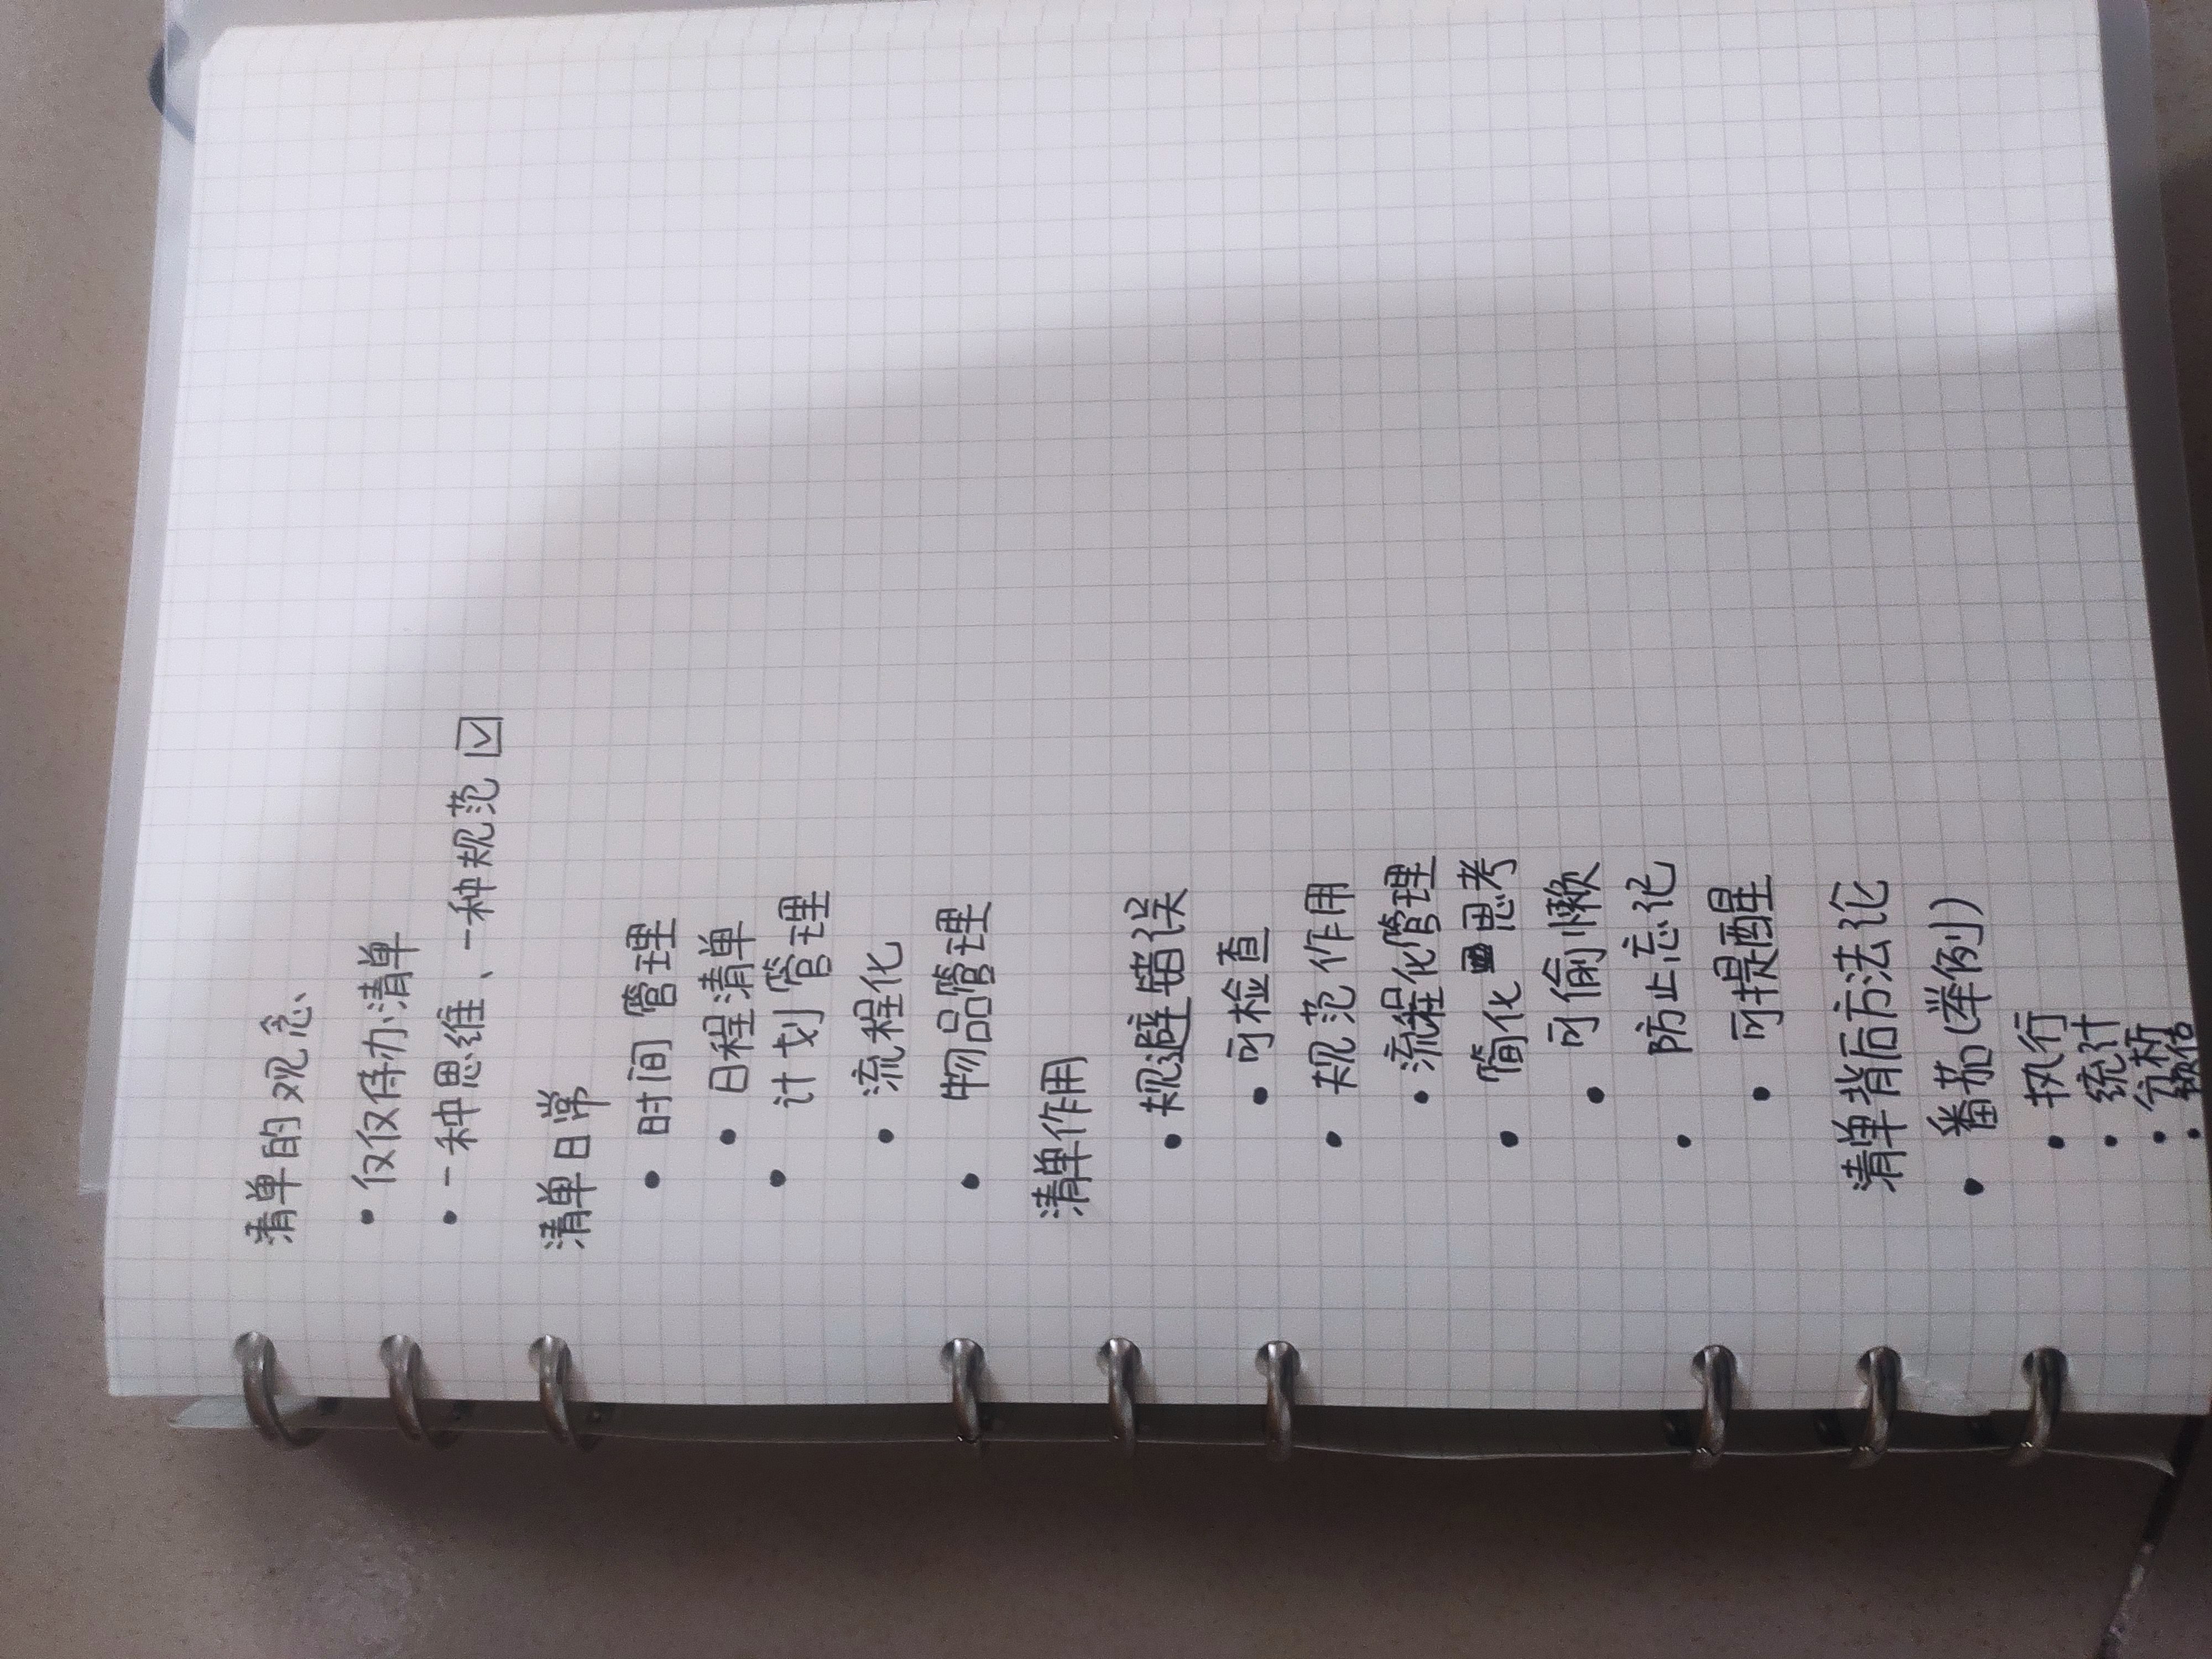 清单的观念
• 仅仅待办清单
• 一种思维、一种规范 ☑
清单日常
• 时间管理
• 日程清单
• 计划管理
• 流程化
• 物品管理
清单作用
• 规避错误
• 可检查
• 规范作用
• 流程化管理
• 简化思考
• 可偷懒
• 防止忘记
• 可提醒
清单背后方法论
• 番茄(举例)
• 执行
• 统计
• 分析
• 预估